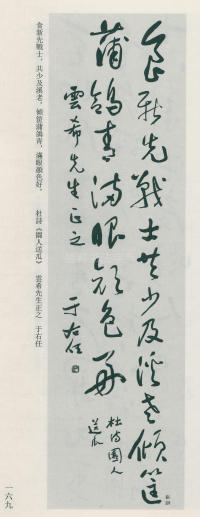 食新先戰士共少及溪老傾筐
蒲鴿青滿眼顏色好
杜詩園人
送瓜
雲希先生正之
于右任
食新先戰士,共少及溪老。傾筐蒲鴿青,滿眼顏色好。 杜詩《園人送瓜》 雲希先生正之 于右任
一六九